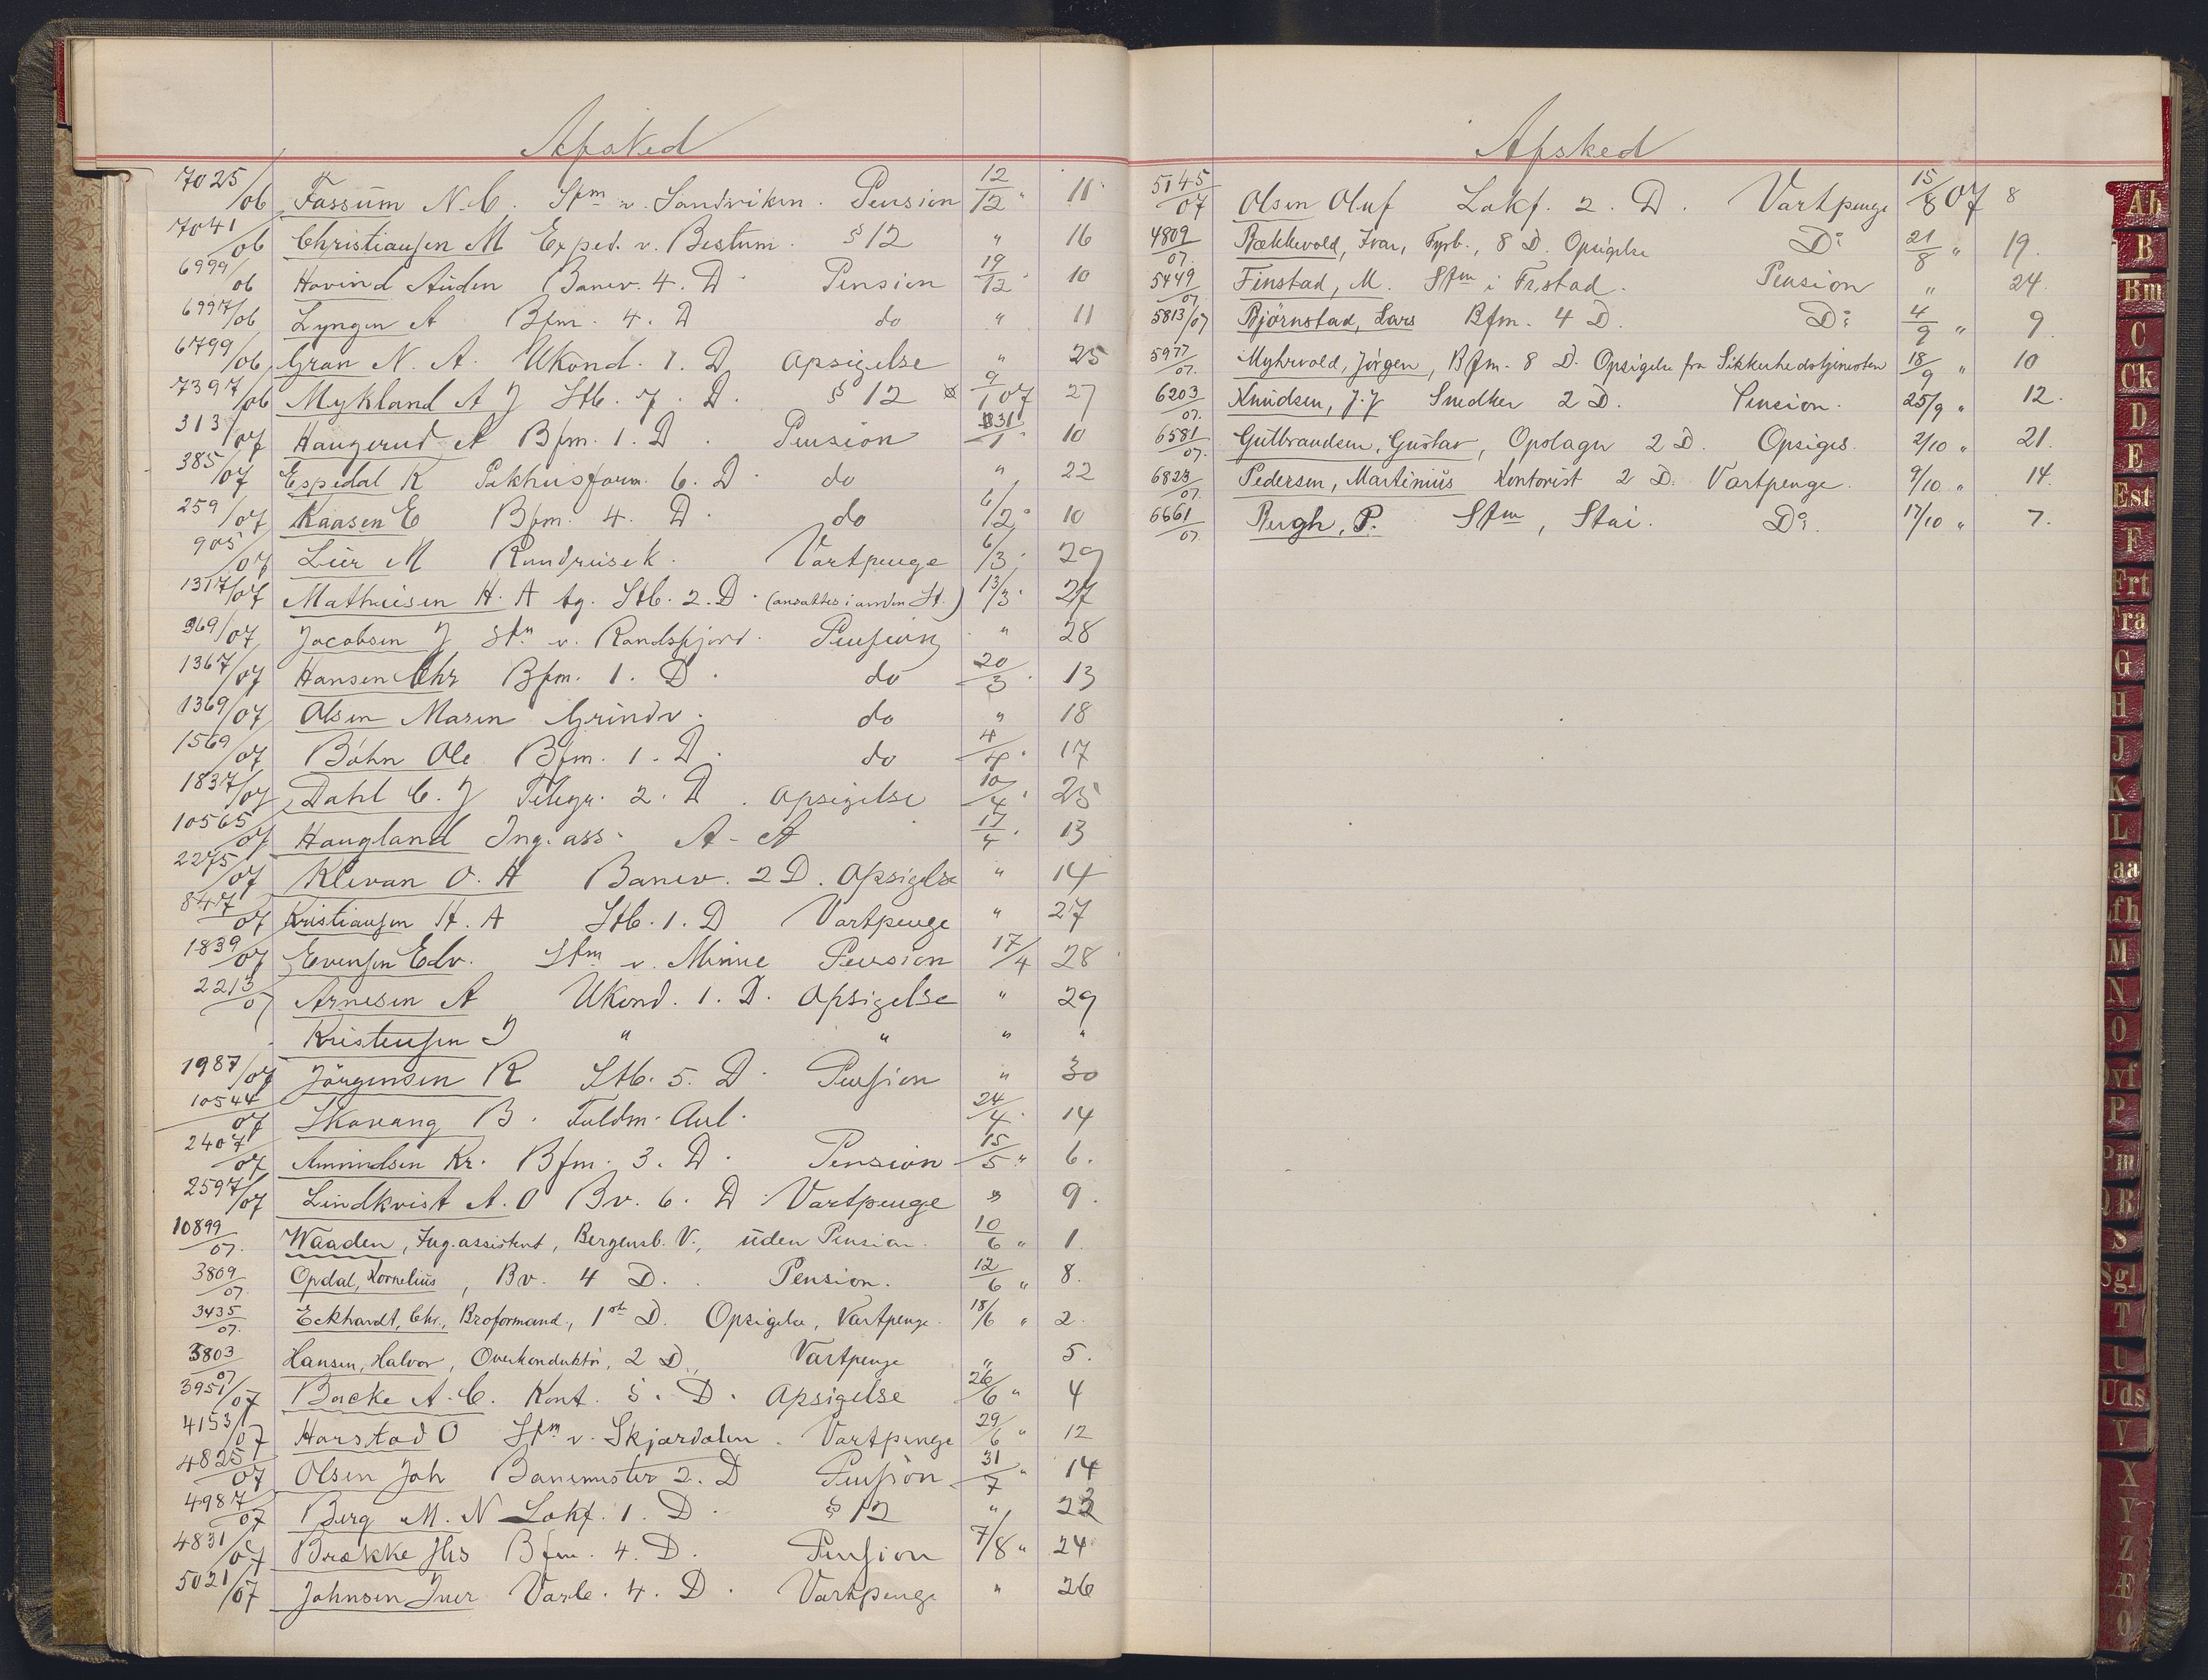 Afsked
7025/06 Fossum N. C. Stm v. Sandviken. Pension 12/12 " 11
7041/06 Christiansen M Exped. v. Bestum. § 12 " 16
6999/06 Hovind Auden Banev. 4. D Pension 19/12 " 10
6997/06 Lyngen A Bfm. 4. D do " 11
6799/06 Gran N. A. Ukond. 1. D Opsigelse " 25
7397/06 Mykland A J Stb. 7. D. § 12 9/1 07 27
313/07 Haugerud A Bfm. 1. D. Pension 31/1 10
385/07 Espedal K Pakhusform. 6. D. do " 22
259/07 Kaasen E Bfm. 4. D. do 6/2 " 10
905/07 Lür M Vartpenge 6/3 " 29
1317/07 Mathiesen H. A tg. Stb. 2. D. (ansattes i anden St.) 13/3 " 27
969/07 Jacobsen J Stm v. Randsfjord. Pension " 28
1367/07 Hansen Chr Bfm. 1. D. do 20/3 " 13
1369/07 Olsen Maren Grindv. do " 18
1569/07 Böhn Ole Bfm. 1. D. do 4/4 " 17
1837/07 Dahl C. J Telegr. 2. D. Opsigelse 10/4 " 25
10565/07 Haugland Ing. ass. A - A 17/4 " 13
2275/07 Klevan O. H Banev. 2 D. Opsigelse " 14
847/07 Kristiansen H. A Stb. 1. D Vartpenge " 27
1839/07 Evensen Edv. Stm v. Minne Pension 17/4 28
2213/07 Arnesen A Ukond. 1. D. Opsigelse " 29
Kristensen J " " " "
1987/07 Jörgensen K Stb. 5. D. Pension " 30
10544/07 Skavang B. Fuldm. Anl. 24/4 " 14
2407/07 Amundsen Kr. Bfm. 3. D. Pension 15/5 " 6.
2597/07 Lindkvist A. O Bv. 6. D. Vartpenge " 9.
10899/07. Waaden, Ing.assistent, Bergensb. V., uden Pension. 10/6 " 1.
3809/07. Opdal, Kornelius, Bv. 4 D. Pension. 12/6 " 8.
3435/07. Eckhardt, Chr., Broformand, 1ste D. Opsigelse, Vartpenge. 18/6 " 2.
3803/07 Hansen, Halvor, Overkonduktör, 2 D., Vartpenge " 5.
3951/07 Backe A. C. Kont. 5. D. Opsigelse 26/6 " 4
4153/07 Harstad O Stm v. Skjærdalen. Vartpenge 29/6 " 12
4825/07 Olsen Joh Banemester 2. D Pension 31/7 " 14
4987/07 Berg M. N Lokf. 1. D. § 12 " 23
4831/07 Brække Jhs Bfm. 4. D. Pension 7/8 " 24
5021/07 Johnsen Iver Varle. 4. D. Vartpenge " 26
Afsked
5145/07 Olsen Oluf Lokf. 2. D. Vartpenge 15/8 07 8
4809/07. Bækkevold, Ivar, Fyrb., 8 D. Opsigelse Do 21/8 " 19.
5449/07 Finstad, M. Stm i Finstad. Pension " 24.
5813/07 Björnstad, Lars Bfm. 4 D. Do 4/9 " 9.
5977/07. Myhrvold, Jörgen, Bfm. 8 D. Opsigelse fra Sikkerhedstjenesten 18/9 " 10
6203/07. Knudsen, J. J Snedker 2 D. Pension. 25/9 " 12.
6581/07. Gulbrandsen, Gustav, Opslager 2 D. Opsiges. 2/10 " 21.
6823/07. Pedersen, Martinius Kontorist 2 D. Vartpenge. 9/10 " 14.
6661/07. Bergh, P. Stm, Stai. Do. 17/10 " 7.
Ab
B
Bm
C
Ck
D
E
Est
F
Frt
Fra
G
H
J
K
L
M
N
O
P
Pm
S
Sgl
T
U
Uds
V
X
Y
Z
Æ
Ø